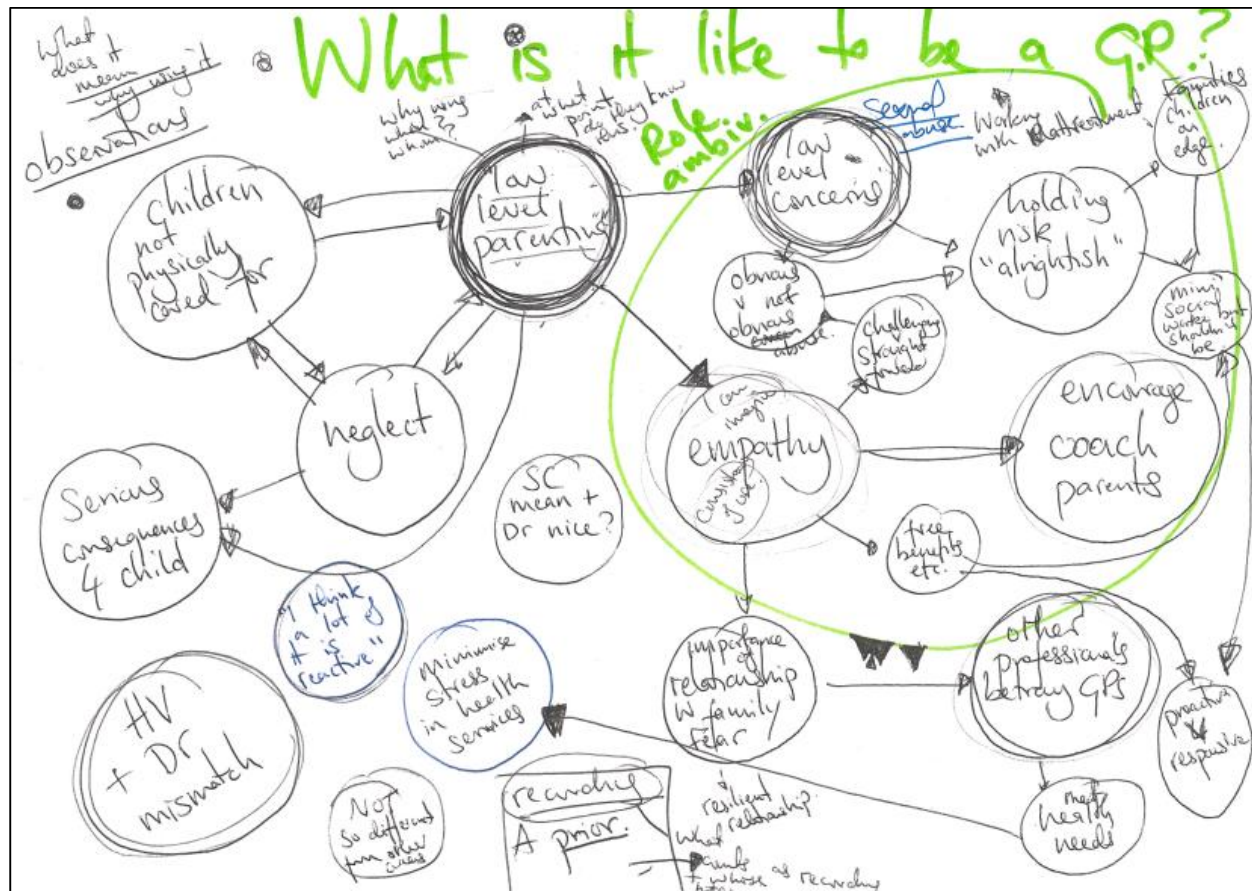 What is it like to be a G.P.?
What
does it
mean
why using it
observations
Why using
when?
whom?
at what
point
do they know
this?
Role.
ambiv.
Sexual
abuse.
Working
with
Families
children
on
edge.
"low
level
parenting"
low
level
concerns
children
not
physically
cared for
holding
risk
"alrightish"
obvious
v not
obvious
abuse.
challenging
straight
forward
mini
social
worker but
shouldn't
be
neglect
I can
imagine
empathy
consistency
of use?
encourage
coach
parents
Serious
consequences
4 child
SC
mean +
Dr nice?
free
benefits
etc.
"I think
a lot of
it is
reactive"
minimise
stress
in health
services
importance
of
relationship
w family
fear
other
professionals
betray GPs
proactive
v
responsive
HV
+ Dr
mismatch
NOT
so different
from other
recording
A prior.
+
resilient
relationship.
What
+ whose as recording
meet
health
needs